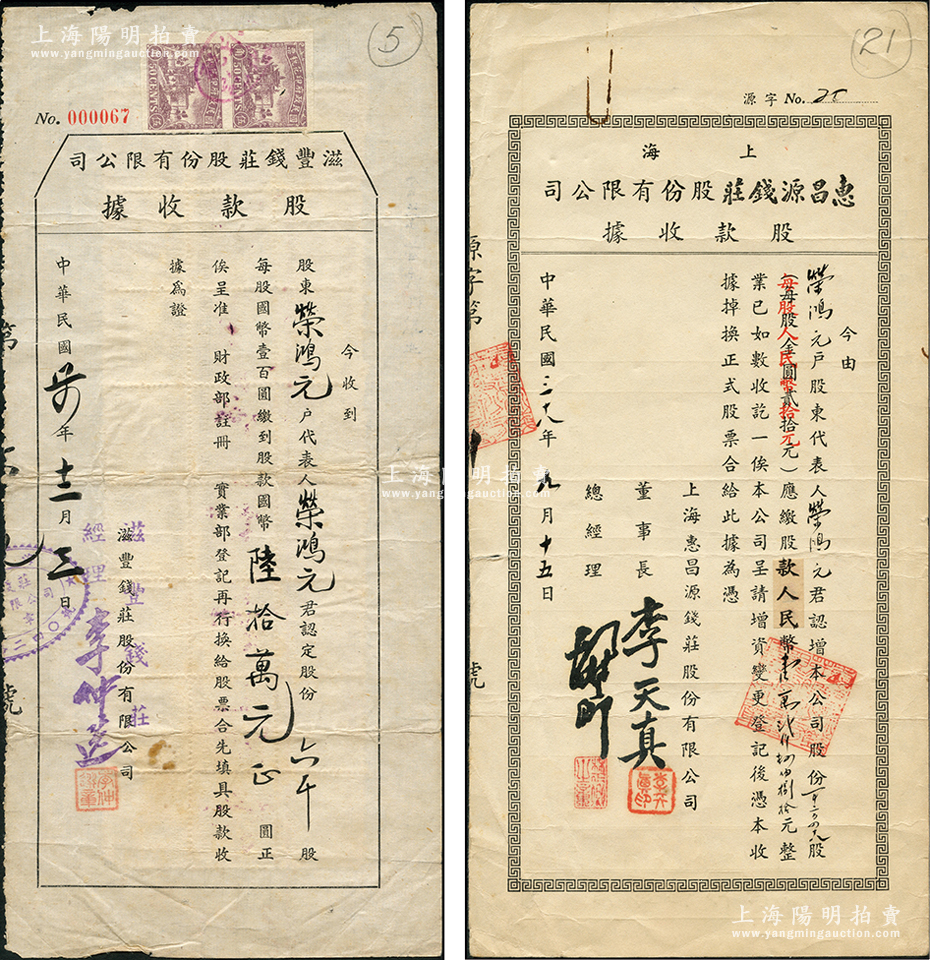 上海陽明拍賣
www.yangmingauction.com
5
No. 000067
50 CENTS
50 CENTS
滋豐錢莊股份有限公司
股款收據
今收到
股東榮鴻元戶代表人榮鴻元君認定股份六千股
每股國幣壹百圓繳到股款國幣陸拾萬元正圓正
俟呈准 財政部註冊 實業部登記再行換給股票合先填具股款收
據爲證
滋豐錢莊股份有限公司
滋豐錢莊
經理李仲
中華民國 年十二月三日
第
號
21
源字No. 25
上海
惠昌源錢莊股份有限公司
股款收據
今由
榮鴻元戶股東代表人榮鴻元君認增本公司股份 股
每股人民幣拾元
每股金圓貳拾元）應繳股款人民幣 元整
業已如數收訖一俟本公司呈請增資變更登記後憑本收
據掉換正式股票合給此據為憑
上海惠昌源錢莊股份有限公司
董事長 李天真
李天真印
總經理
中華民國三十八年九月十五日
源字第
號
上海陽明拍賣
www.yangmingauction.com
上海陽明拍賣
www.yangmingauction.com